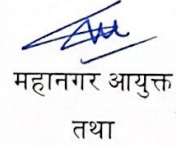 महानगर आयुक्त
तथा